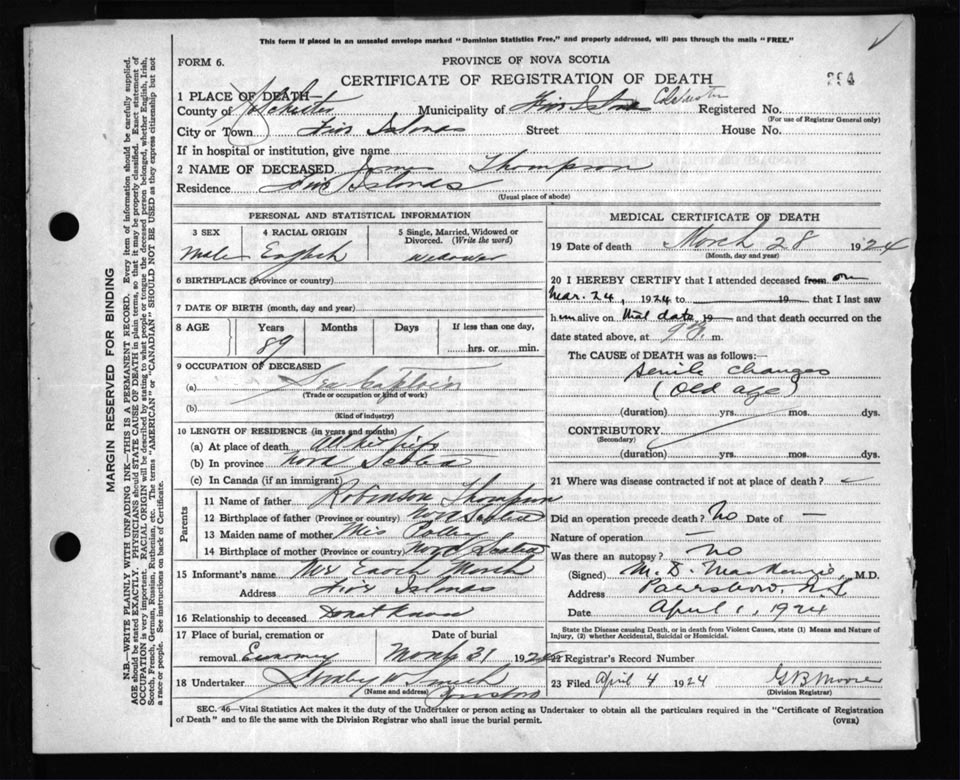 This form if placed in an unsealed envelope marked "Dominion Statistics Free," and properly addressed, will pass through the mails "FREE."
FORM 6.
PROVINCE OF NOVA SCOTIA
CERTIFICATE OF REGISTRATION OF DEATH
1 PLACE OF DEATH—
County of Colchester Municipality of Five Islands Colchester Registered No.
(For use of Registrar General only)
City or Town Five Islands Street House No.
If in hospital or institution, give name
2 NAME OF DECEASED Thompson
Residence Five Islands
(Usual place of abode)
PERSONAL AND STATISTICAL INFORMATION
3 SEX 4 RACIAL ORIGIN 5 Single, Married, Widowed or Divorced. (Write the word)
Male English Widower
6 BIRTHPLACE (Province or country)
7 DATE OF BIRTH (month, day and year)
8 AGE Years Months Days If less than one day,
89 hrs. or min.
9 OCCUPATION OF DECEASED
(a) Sea Captain
(Trade or occupation or kind of work)
(b)
(Kind of industry)
10 LENGTH OF RESIDENCE (in years and months)
(a) At place of death All his life
(b) In province Nova Scotia
(c) In Canada (if an immigrant)
Parents
11 Name of father Robinson Thompson
12 Birthplace of father (Province or country) Nova Scotia
13 Maiden name of mother Mis
14 Birthplace of mother (Province or country) Nova Scotia
15 Informant's name Mrs Enoch Marsh
Address Five Islands
16 Relationship to deceased Dont Know
17 Place of burial, cremation or Date of burial
removal Economy March 31 192
18 Undertaker Smith
(Name and address)
MEDICAL CERTIFICATE OF DEATH
19 Date of death March 28 1924
(Month, day and year)
20 I HEREBY CERTIFY that I attended deceased from on
Mar. 24, 1924 to 19 that I last saw
him alive on that date 19 and that death occurred on the
date stated above, at m.
The CAUSE OF DEATH was as follows:—
Senile changes
(Old age)
(duration) yrs. mos. dys.
CONTRIBUTORY
(Secondary)
(duration) yrs. mos. dys.
21 Where was disease contracted if not at place of death?
Did an operation precede death? No Date of —
Nature of operation —
Was there an autopsy? No
(Signed) M. D. MacKenzie, M.D.
Address Parrsboro, N.S.
Date April 1, 1924
State the Disease causing Death, or in death from Violent Causes, state (1) Means and Nature of Injury, (2) whether Accidental, Suicidal or Homicidal.
22 Registrar's Record Number
23 Filed April 4 1924 G B Moore
(Division Registrar)
SEC. 46—Vital Statistics Act makes it the duty of the Undertaker or person acting as Undertaker to obtain all the particulars required in the "Certificate of Registration
of Death" and to file the same with the Division Registrar who shall issue the burial permit.
(OVER)
MARGIN RESERVED FOR BINDING
N.B.—WRITE PLAINLY WITH UNFADING INK—THIS IS A PERMANENT RECORD. Every item of information should be carefully supplied.
AGE should be stated EXACTLY. PHYSICIANS should STATE CAUSE OF DEATH in plain terms, so that it may be properly classified. Exact statement of
OCCUPATION is very important. RACIAL ORIGIN will be described by stating to what people or tongue the deceased person belonged, whether English, Irish,
Scotch, French, German, Russian, Ruthenian, etc. The terms "AMERICAN" or "CANADIAN" SHOULD NOT BE USED as they express citizenship but not
a race or people. See instructions on back of Certificate.